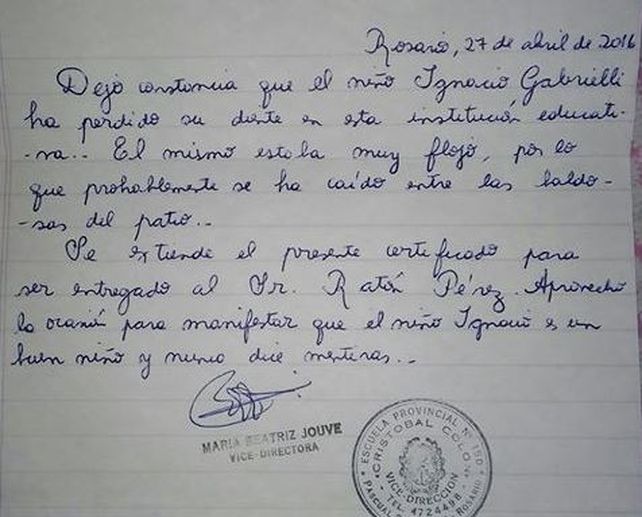 Rosario, 27 de abril de 2016
Dejo constancia que el niño Ignacio Gabrielli
ha perdido su diente en esta institución educati-
-va.. El mismo estaba muy flojo, por lo
que probablemente se ha caído entre las baldo-
-sas del patio..
Se extiende el presente certificado para
ser entregado al Sr. Ratón Pérez. Aprovecho
la ocasión para manifestar que el niño Ignacio es un
buen niño y nunca dice mentiras..
MARIA BEATRIZ JOUVE
VICE-DIRECTORA
ESCUELA PROVINCIAL Nº
"CRISTOBAL COLON"
VICE-DIRECCION
TEL. 4724498
PASCUAL
ROSARIO